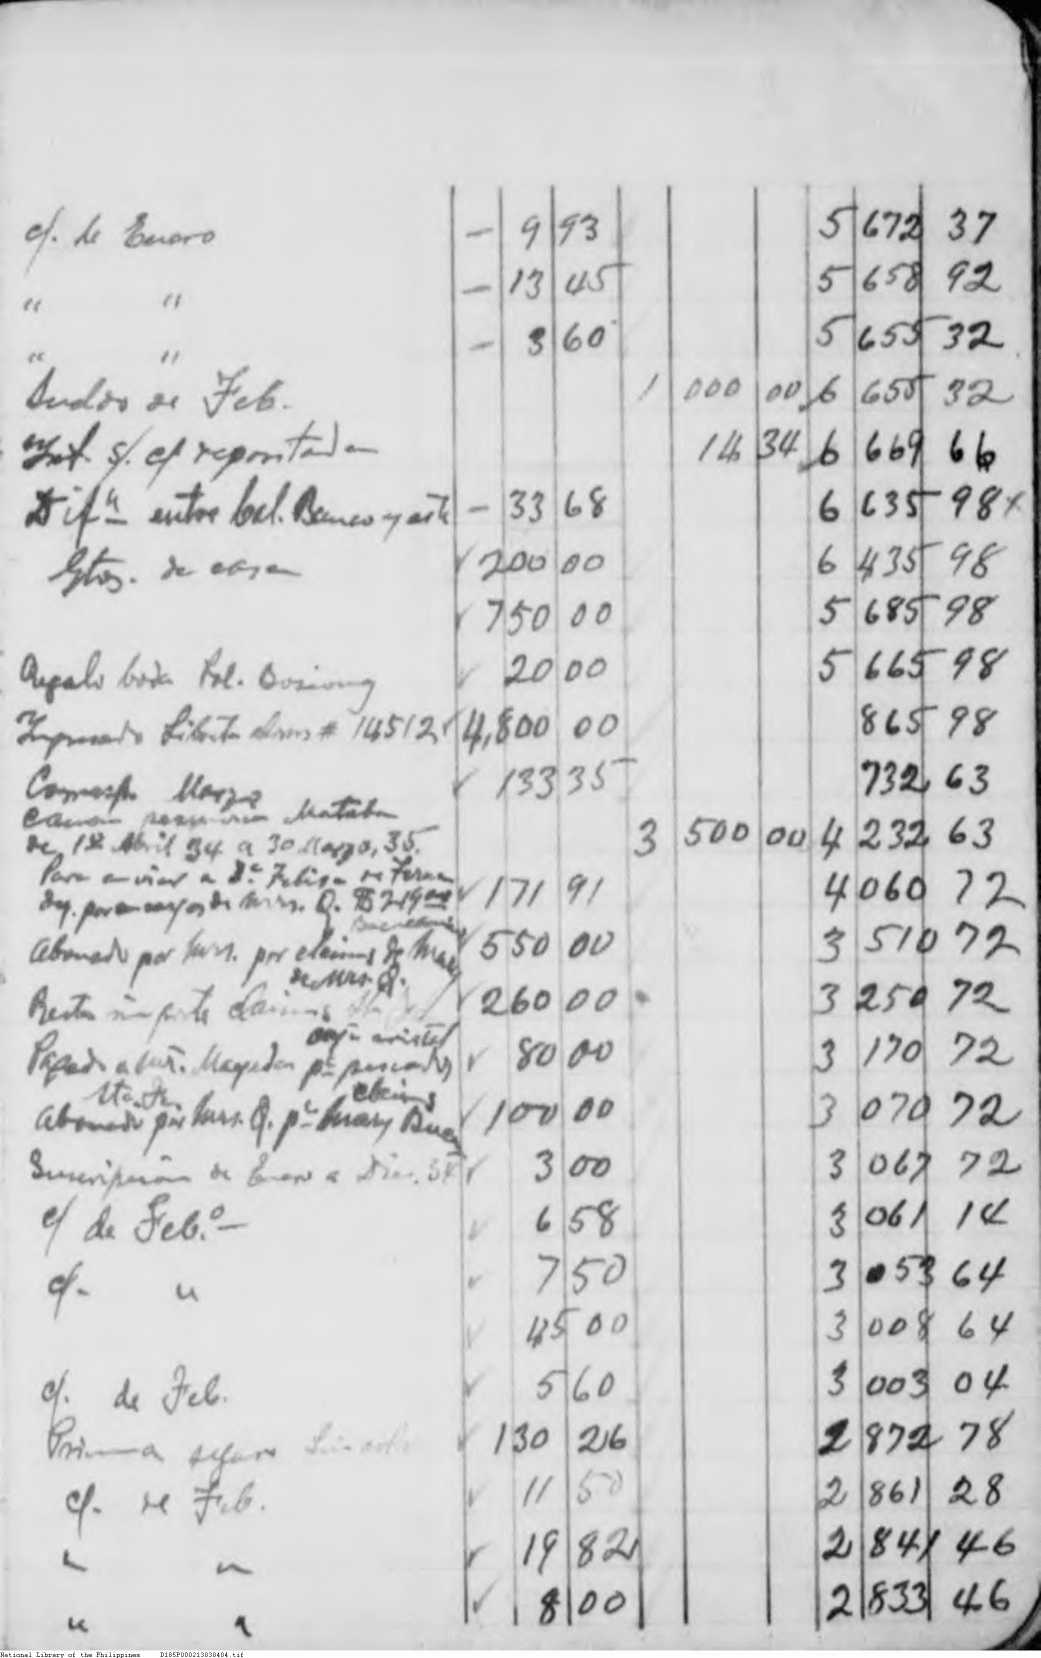 c/. de Enero - 9 93 5 672 37
" " - 13 45 5 658 92
" " - 3 60 5 655 32
Sueldo de Feb. 1 000 00 6 655 32
Int. s/. c/ reportada 14 34 6 669 66
Difª entre bal. Banco y este - 33 68 6 635 98 x
Gtos. de casa √ 200 00 6 435 98
√ 750 00 5 685 98
Regalo boda Pol. √ 20 00 5 665 98
# 14512 √ 4,800 00 865 98
Marzo √ 133 35 732 63
Canon
de 1º Abril 34 a 30 Marzo, 35. 3 500 00 4 232 63
Para enviar a Dª Felisa de
por encargos de Mrs. Q. √ 171 91 4 060 72
Abonado por Mrs. por claims de √ 550 00 3 510 72
de Mrs. Q.
Resto importe claims √ 260 00 3 250 72
Pagado a √ 80 00 3 170 72
claims
Abonado por Mrs. Q. pª Mary √ 100 00 3 070 72
Suscripción de Enero a Dic. 34 √ 3 00 3 067 72
c/ de Feb.º √ 6 58 3 061 14
c/. " √ 7 50 3 053 64
√ 45 00 3 008 64
c/. de Feb. √ 5 60 3 003 04
Prima seguro √ 130 26 2 872 78
c/. de Feb. √ 11 50 2 861 28
" " √ 19 82 2 841 46
" " √ 8 00 2 833 46
National Library of the Philippines D185P000213838404.tif